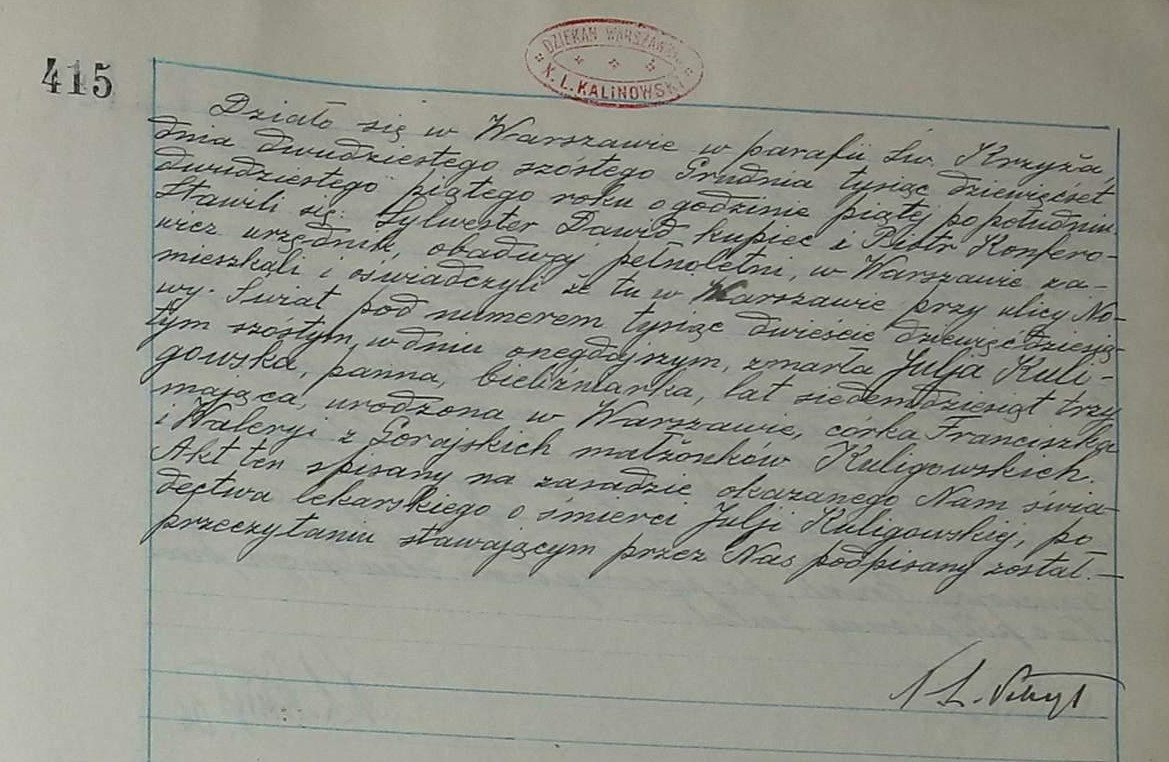 415
DZIEKAN WARSZAWSKI
X. L. KALINOWSKI
Działo się w Warszawie w parafii Św. Krzyża,
dnia dwudziestego szóstego Grudnia tysiąc dziewięćset
dwudziestego piątego roku o godzinie piątej po południu
Stawili się: Sylwester Dawid kupiec i Piotr Konfero-
wicz urzędnik, obadwaj pełnoletni, w Warszawie za-
mieszkali i oświadczyli że tu w Warszawie przy ulicy No-
wy-Świat pod numerem tysiąc dwieście dziewięćdziesią-
tym szóstym, w dniu onegdajszym, zmarła Julja Kuli-
gowska, panna, bieliźniarka, lat siedemdziesiąt trzy
mająca, urodzona w Warszawie, córka Franciszka
i Waleryi z Gorajskich małżonków Kuligowskich.
Akt ten spisany na zasadzie okazanego Nam świa-
dectwa lekarskiego o śmierci Julji Kuligowskiej, po
przeczytaniu stawającym przez Nas podpisany został.—